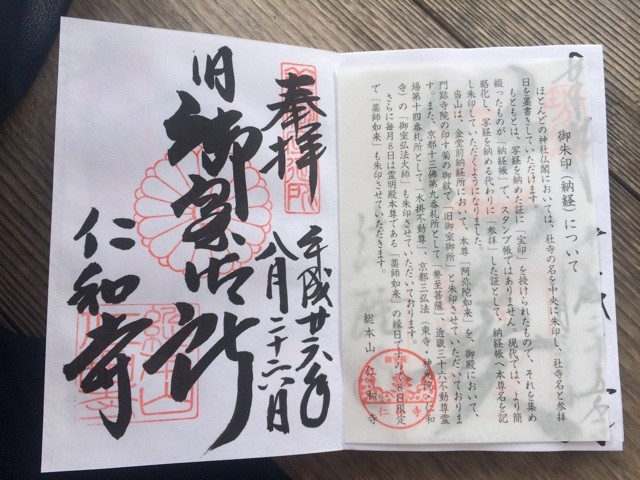 御朱印（納経）について
ほとんどの神社仏閣においては、社寺の名を中央に朱印し、社寺名と参拝
日を墨書きしていただけます。
もともとは、写経を納めた証に「宝印」を授けられたもので、それを集め
綴ったものが「納経帳」で、スタンプ帳ではありません。現代では、より簡
略化し、写経を納める代わりに「参拝」した証として、納経帳へ本尊名を記
し朱印していただくようになりました。
当山は、金堂前納経所において、本尊「阿弥陀如来」を、御殿において、
門跡寺院の印す菊の御紋で「旧御室御所」と朱印させていただいておりま
す。また、京都十三佛第九番札所として「勢至菩薩」、近畿三十六不動尊霊
場第十四番札所として「水掛不動尊」、京都三弘法（東寺・神光院・仁和
寺）の「御室弘法大師」も朱印させていただいております。
さらに毎月８日は霊明殿本尊である「薬師如来」の縁日ですので８日限定
で「薬師如来」も朱印させていただきます。
総本山 仁和寺
奉拝
平成廿六年
八月二十六日
旧御室御所
仁和寺